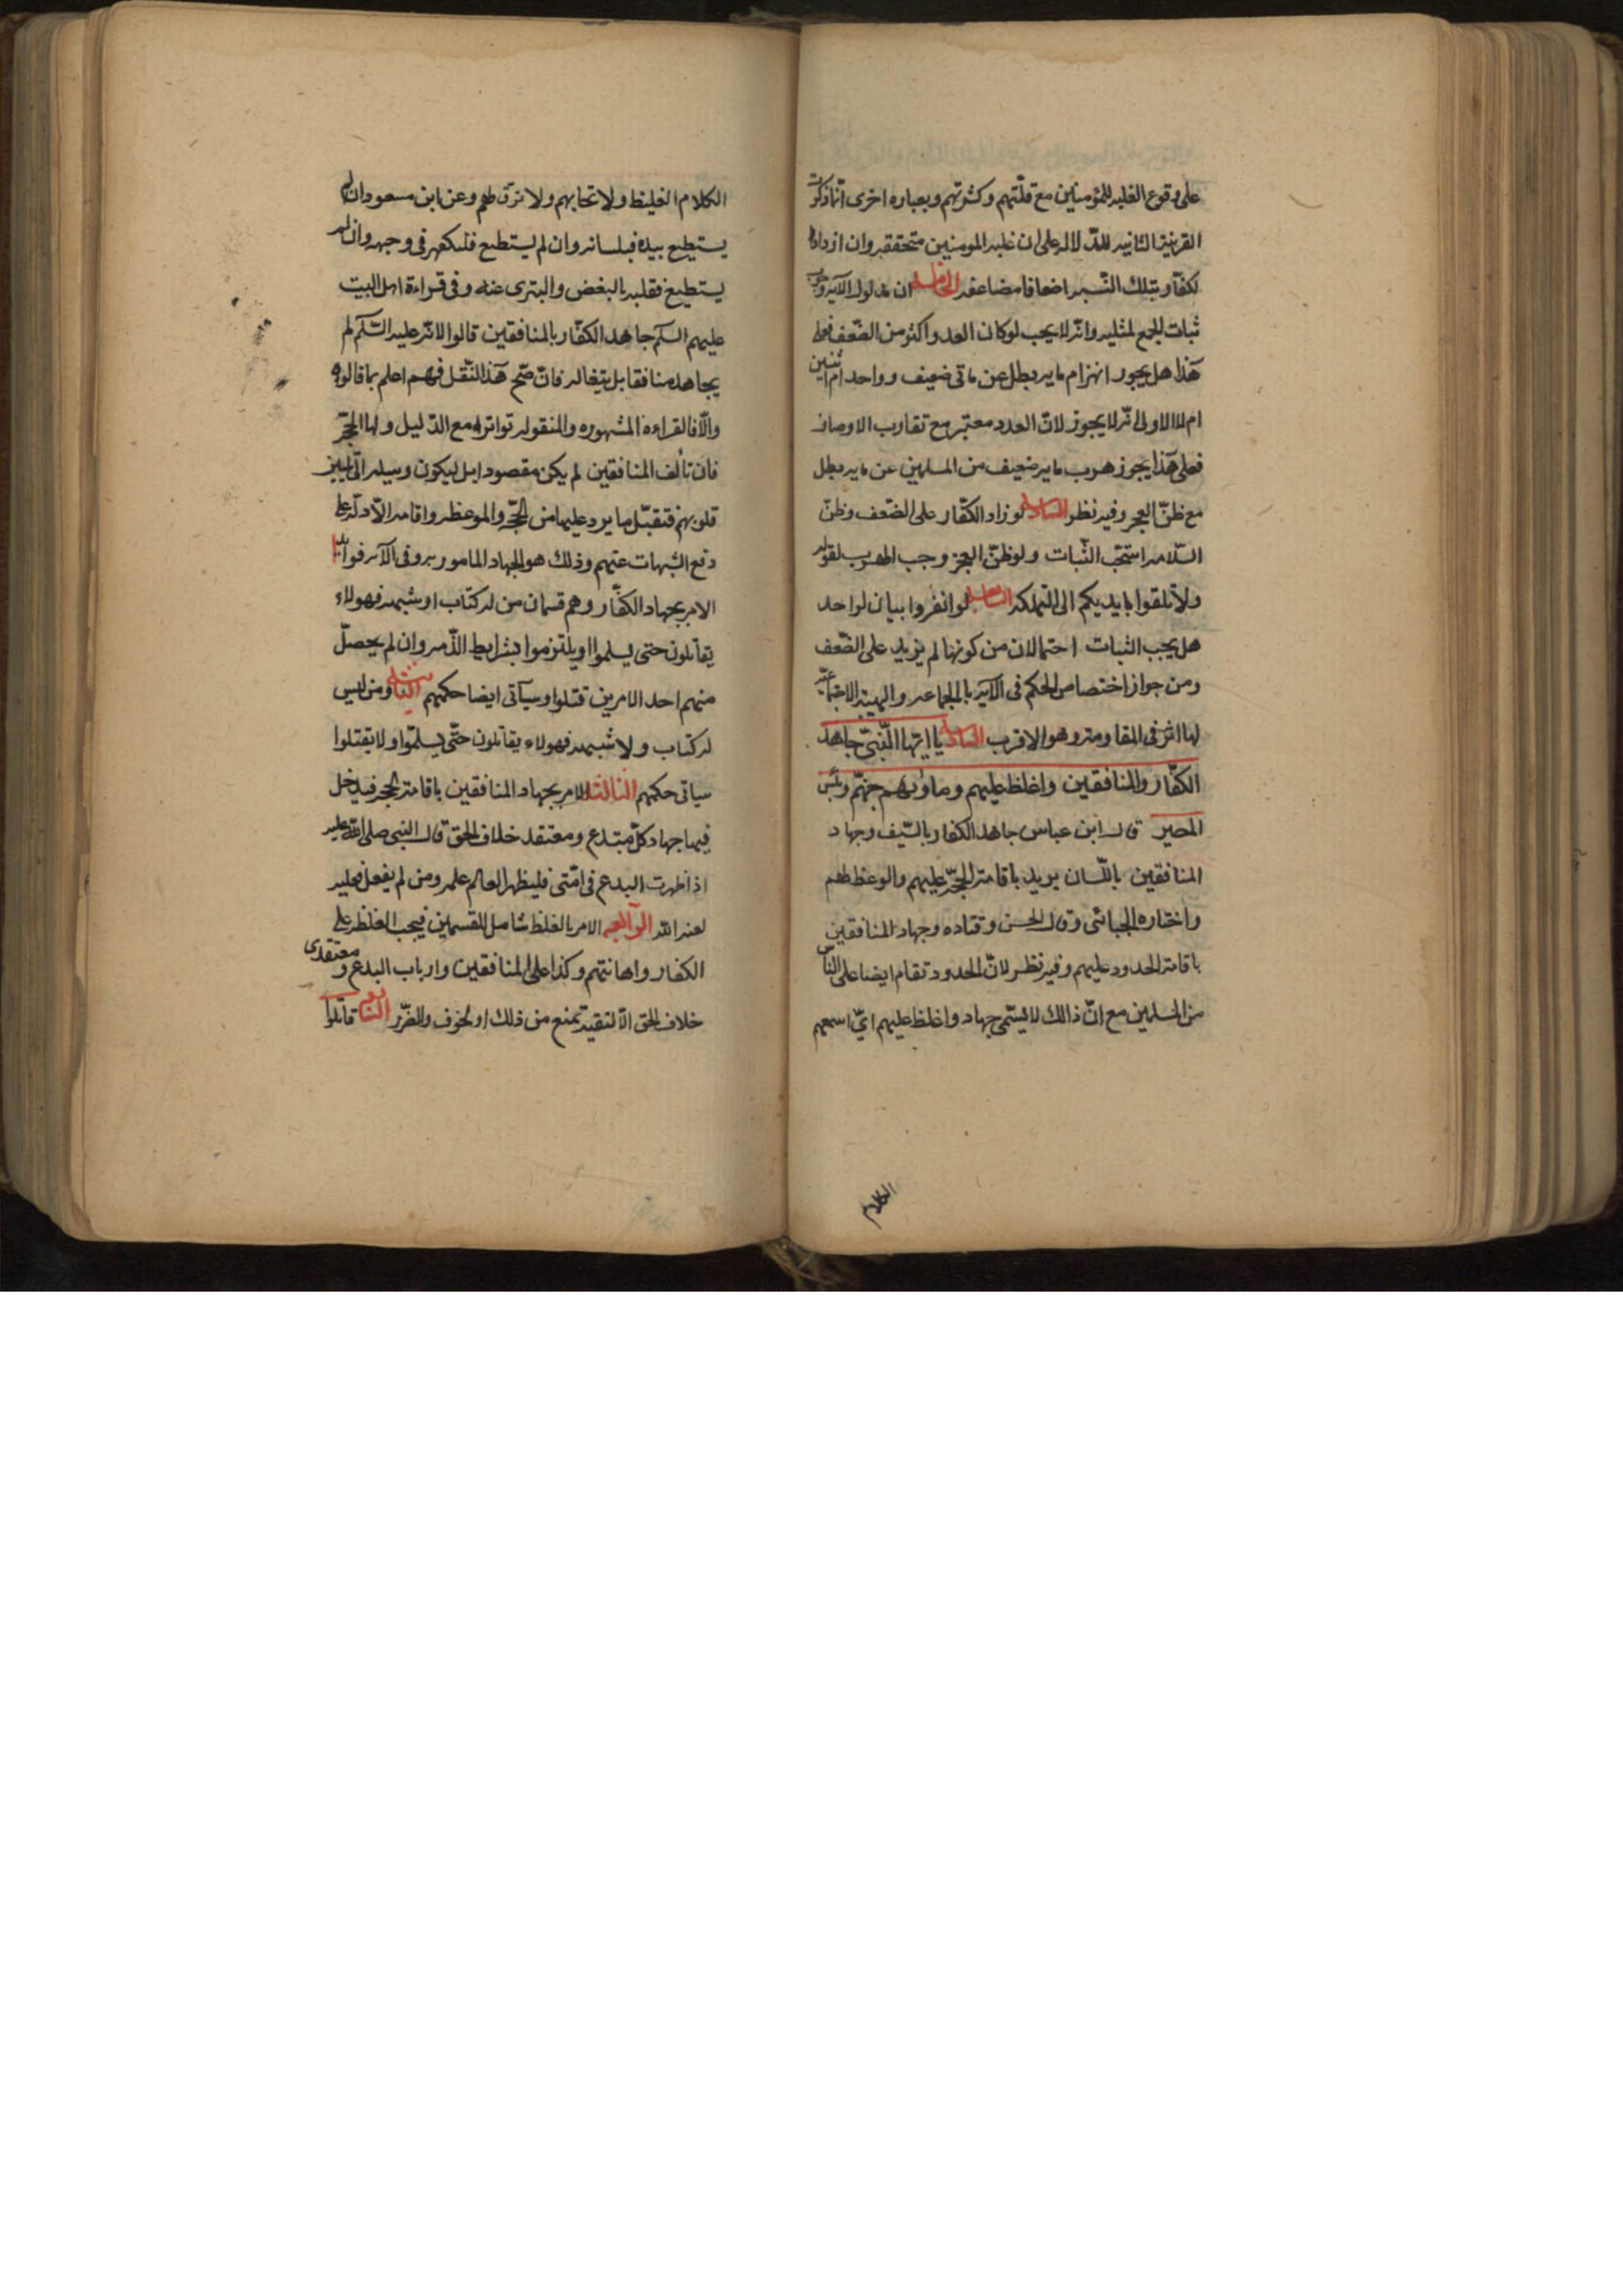 على وقوع الغلبه للمؤمنين مع قلّتهم وكثرتهم وبعباره اخرى انّما ذكرت
القرينة الثانيه للدّلاله على ان غلبه المومنين متحققه وان ازداد
الكفّار بتلك النّسبه اضعافا مضاعفه الخامسه ان مدلول الآيه وجوب
ثبات الجمع لمثليه وانّه لا يجب لو كان العدو اكثر من الضّعف فعلى
هذا هل يجوز انهزام مايه بطل عن ماتى ضعيف وواحد ام اثنين
ام لا الاولى انّه لا يجوز لانّ العدد معتبر مع تقارب الاوصاف
فعلى هذا يجوز هرب مايه ضعيف من المسلمين عن مايه بطل
مع ظنّ العجز وفيه نظر السادسه لو زاد الكفّار على الضّعف وظنّ
السّلامه استحّب الثّبات ولو ظنّ العجز وجب الهرب لقوله
ولا تلقوا بايديكم الى التهلكه السابعه لو انفرد اثنان لواحد
هل يجب الثبات احتمالان من كونهما لم يزيدا على الضّعف
ومن جواز اختصاص الحكم فى الآيه بالجماعه والهيئة الاجتماعيّه
لها اثر فى المقاومه وهو الاقرب السادسه يا ايّها النّبىّ جاهد
الكفّار والمنافقين واغلظ عليهم وماوٰىهم جهنّم وبئس
المصير قال ابن عباس جاهد الكفار بالسّيف وجهاد
المنافقين باللّسان يريد باقامة الحجّه عليهم والوعظ لهم
واختاره الجبائى وقال الحسن وقتاده وجهاد المنافقين
باقامة الحدود عليهم وفيه نظر لانّ الحدود تقام ايضا على النّاس
من المسلمين مع انّ ذالك لا يسّمى جهاد واغلظ عليهم اىّ اسمعهم
الكلام
الكلام الغليظ ولا تحابهم ولا ترّق لهم وعن ابن مسعود ان لم
يستطيع بيده فبلسانه وان لم يستطع فليكفهر فى وجهه وان لم
يستطيع فقلبه بالبغض والتبرى عنه وفى قراءة اهل البيت
عليهم السلم جاهد الكفّار بالمنافقين قالوا لانّه عليه السّلم لم
يجاهد منافقا بل يتغالهم فانّ صّح هذا النّقل فهم اعلم بما قالوه
والاّ فالقراءه المشهوره والمنقوله تواتر له مع الدّليل ولها الحجّه
فان تألف المنافقين لم يكن مقصود ابل ليكون وسيله الى تليين
قلوبهم فتقبّل ما يرد عليها من الحجّه والموعظه واقامه الاّدلّه على
دفع الشبهات عنهم وذلك هو الجهاد المامور به وفى الآيه فوائد ا
الامر بجهاد الكفّار وهم قسمان من له كتاب او شبهه فهولاء
يقاتلون حتى يسلموا او يلتزموا بشرايط الذّمه وان لم يحصل
منهم احد الامرين قتلوا وسيأتى ايضا حكمهم الثانيه ومن ليس
له كتاب ولا شبهه فهولاء يقاتلون حتّى يسلموا ولا يقتلوا
سياتى حكمهم الثالثه الامر بجهاد المنافقين باقامة الحجه فيدخل
فيها جهاد كلّ مبتدع ومعتقد خلاف الحق قال النبى صلى الله عليه
اذا ظهرت البدع فى امّتى فليظهر العالم علمه ومن لم يفعل فعليه
لعنه الله الرابعه الامر بالغلظ شامل للقسمين فيجب الغلظه على
الكفار واهانتهم وكذا على المنافقين وارباب البدع ومعتقدى
خلاف الحق الاّ لتقيه تمنع من ذلك او لخوف والضّرر السابعه قاتلوا